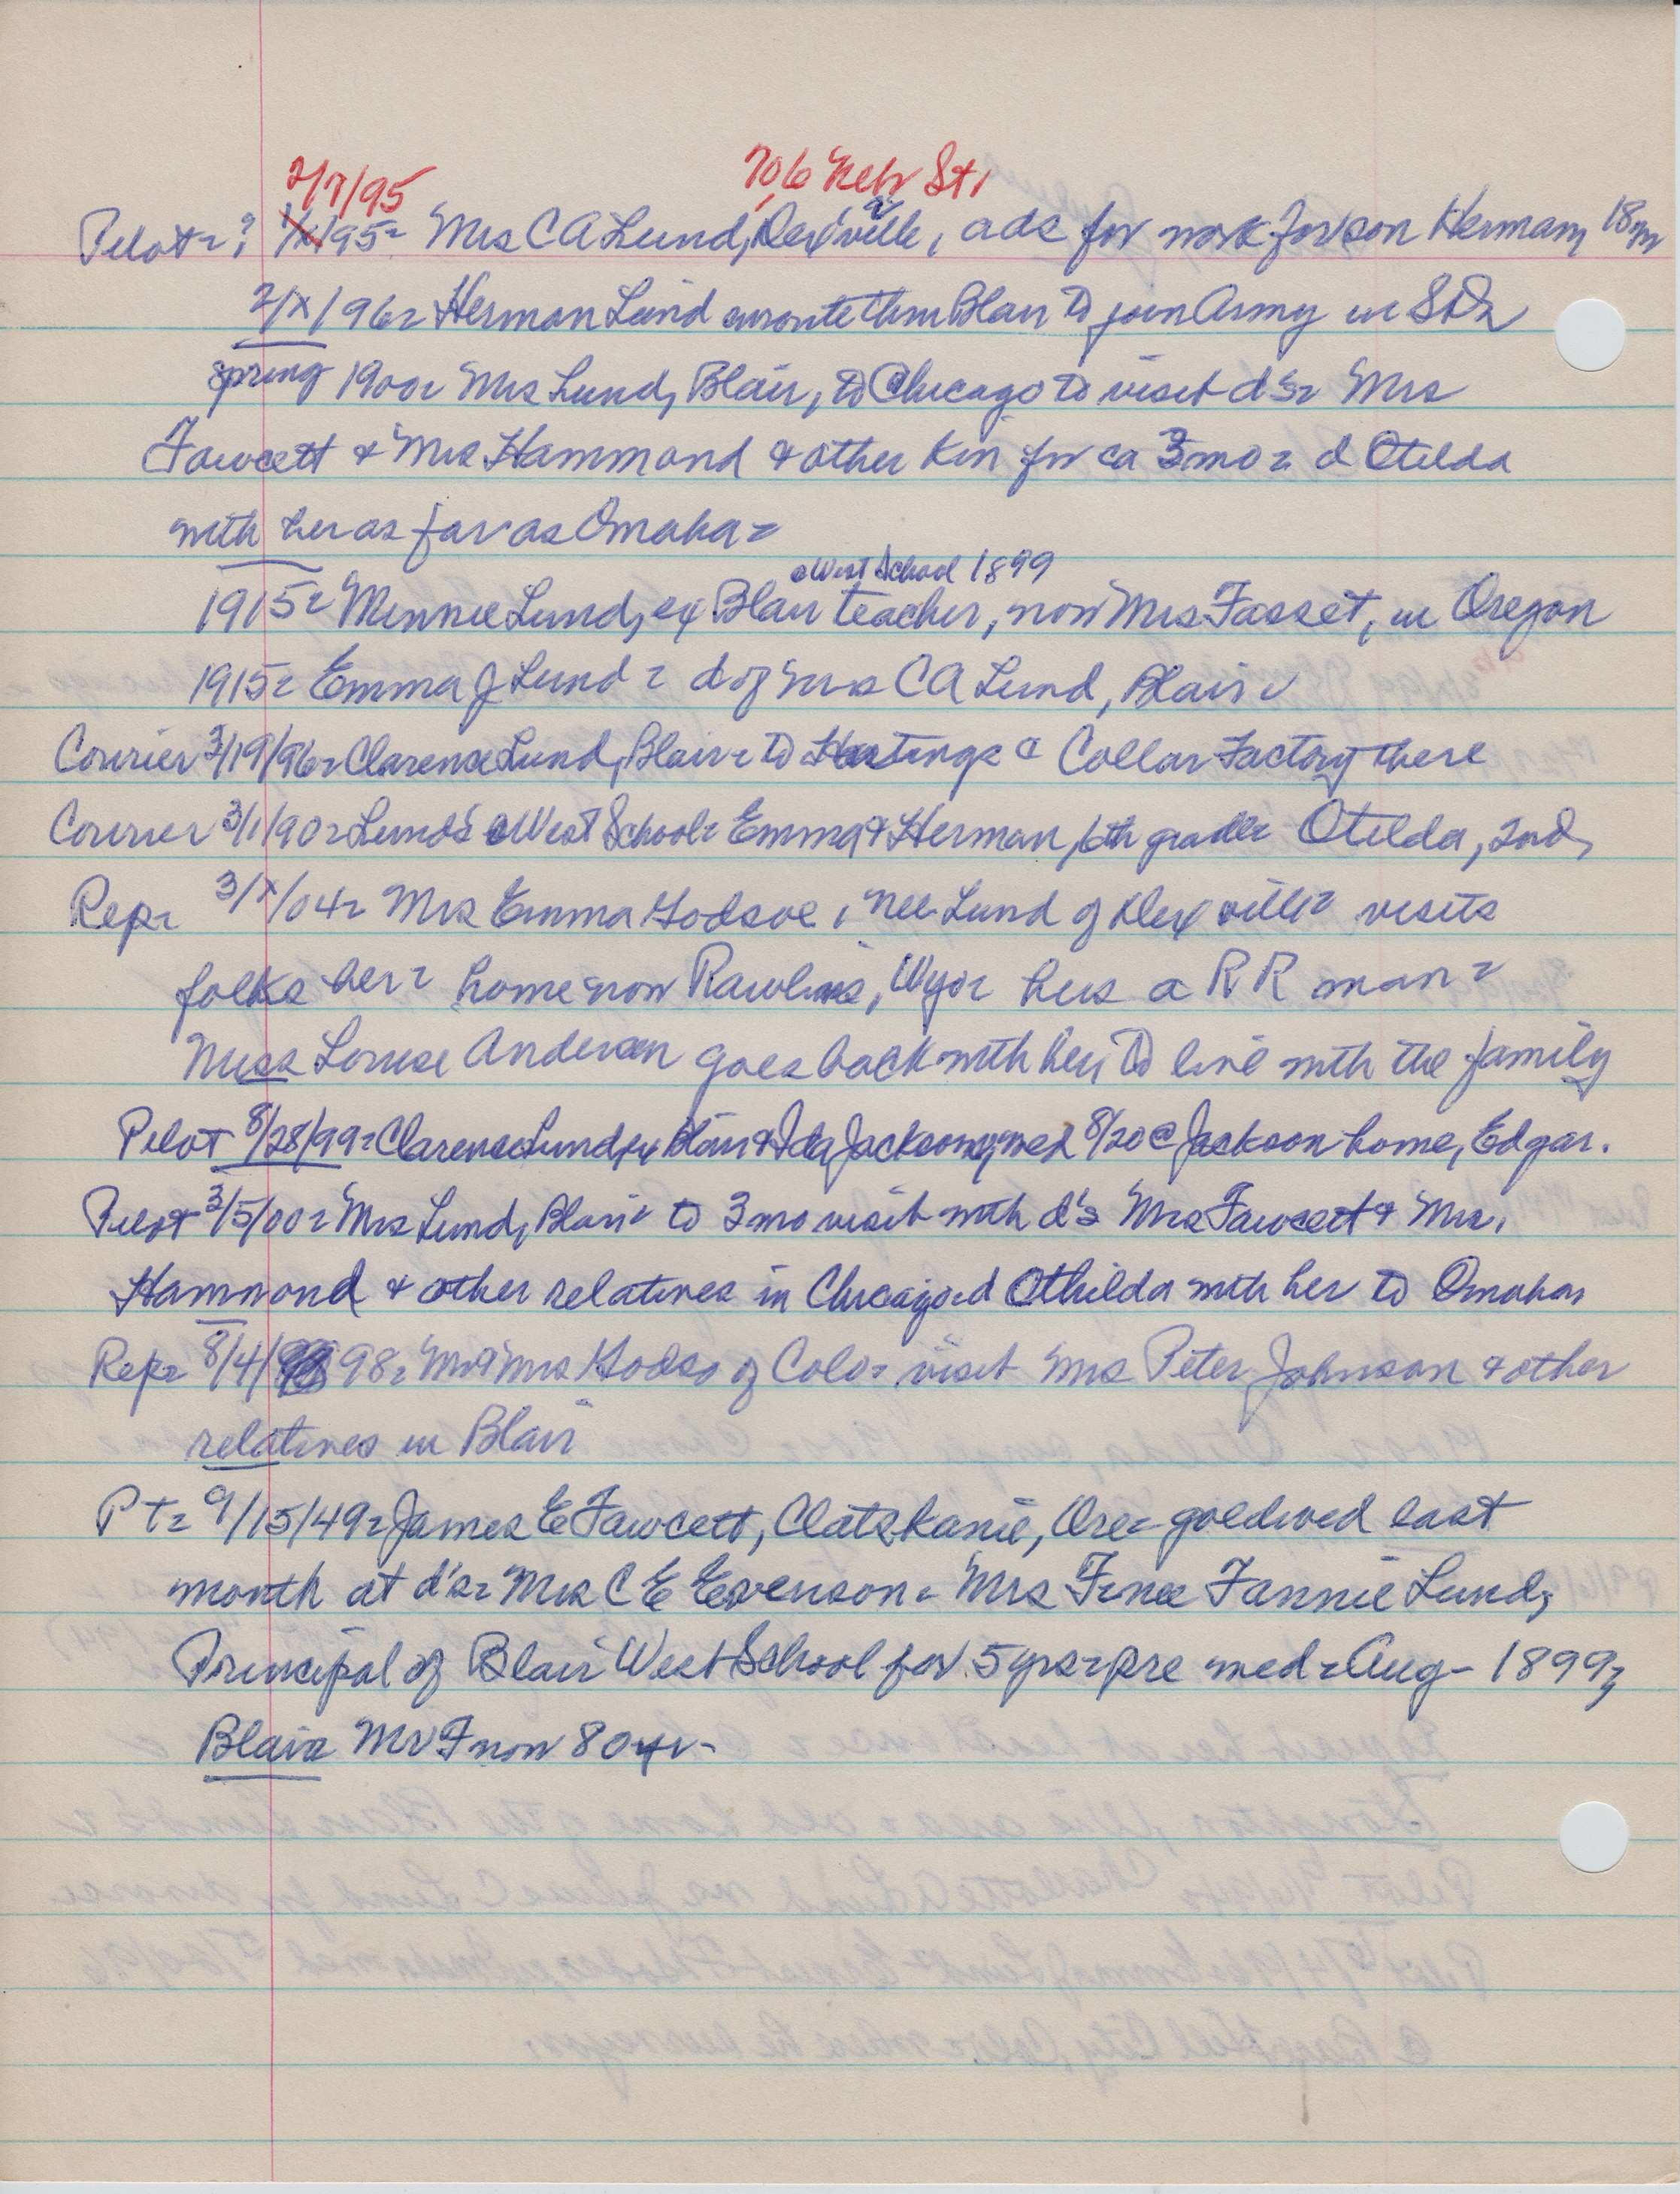 2/7/95 706 Nebr St,
Pilot = ? 1/x/95 = Mrs C A Lund, Dexville, ads for work for son Herman, 18 yr
2/x/96 = Herman Lund enroute thru Blair to join Army in SD =
spring 1900 = Mrs Lund, Blair, to Chicago to visit d's = Mrs
Fawcett & Mrs Hammond & other kin for ca 3 mo = d Otilda
with her as far as Omaha =
@ West School 1899
1915 = Minnie Lund, ex Blair teacher, now Mrs Fasset, in Oregon
1915 = Emma J Lund = d of Mrs C A Lund, Blair =
Courier 3/19/96 = Clarence Lund, Blair = to Hastings @ Collar Factory there
Courier 3/1/90 = Lunds @ West School = Emma & Herman, 6th grade = Otilda, 2nd,
Rep = 3/x/04 = Mrs Emma Hodsoe, nee Lund of Dexville = visits
folks here = home now Rawlins, Wyo = hus a RR man =
Miss Louise Andersen goes back with her, to live with the family
Pilot 8/28/99 = Clarence Lund, ex Blair & Ida Jackson, med 8/20 @ Jackson home, Edgar.
Pilot 3/5/00 = Mrs Lund, Blair = to 3 mo visit with d's Mrs Fawcett & Mrs.
Hammond & other relatives in Chicago = d Othilda with her to Omaha,
Rep = 8/4/98 = Mr & Mrs Hodso of Colo = visit Mrs Peter Johnson & other
relatives in Blair
P T = 9/15/49 = James E Fawcett, Clatskanie, Ore = gold wed last
month at d's = Mrs C E Evenson = Mrs F nee Fannie Lund,
Principal of Blair West School for 5 yrs = pre med = Aug - 1899,
Blair Mr F now 80 yr -